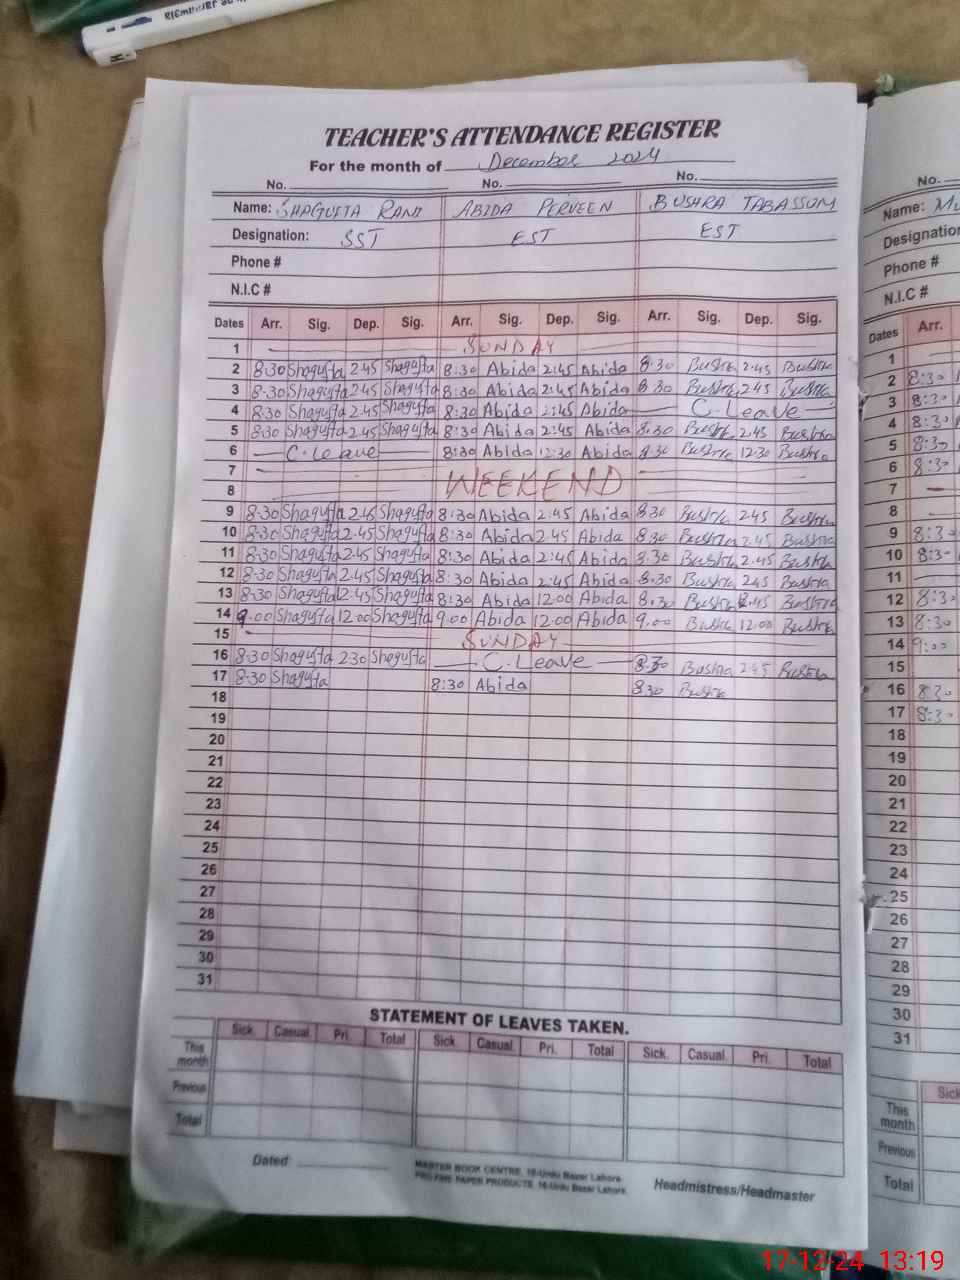 TEACHER'S ATTENDANCE REGISTER
For the month of December 2024
No. No. No.
Name: SHAGUFTA RANI ABIDA PERVEEN BUSHRA TABASSUM
Designation: SST EST EST
Phone #
N.I.C #
Dates Arr. Sig. Dep. Sig. Arr. Sig. Dep. Sig. Arr. Sig. Dep. Sig.
1 SUNDAY
2 8:30 Shagufta 2:45 Shagufta 8:30 Abida 2:45 Abida 8:30 Bushra 2:45 Bushra
3 8:30 Shagufta 2:45 Shagufta 8:30 Abida 2:45 Abida 8:30 Bushra 2:45 Bushra
4 8:30 Shagufta 2:45 Shagufta 8:30 Abida 2:45 Abida C.Leave
5 8:30 Shagufta 2:45 Shagufta 8:30 Abida 2:45 Abida 8:30 Bushra 2:45 Bushra
6 C.Leave 8:30 Abida 12:30 Abida 8:30 Bushra 12:30 Bushra
7
8 WEEKEND
9 8:30 Shagufta 2:45 Shagufta 8:30 Abida 2:45 Abida 8:30 Bushra 2:45 Bushra
10 8:30 Shagufta 2:45 Shagufta 8:30 Abida 2:45 Abida 8:30 Bushra 2:45 Bushra
11 8:30 Shagufta 2:45 Shagufta 8:30 Abida 2:45 Abida 8:30 Bushra 2:45 Bushra
12 8:30 Shagufta 2:45 Shagufta 8:30 Abida 2:45 Abida 8:30 Bushra 2:45 Bushra
13 8:30 Shagufta 2:45 Shagufta 8:30 Abida 12:00 Abida 8:30 Bushra 2:45 Bushra
14 9:00 Shagufta 12:00 Shagufta 9:00 Abida 12:00 Abida 9:00 Bushra 12:00 Bushra
15 SUNDAY
16 8:30 Shagufta 2:30 Shagufta C.Leave 8:30 Bushra 2:45 Bushra
17 8:30 Shagufta 8:30 Abida 8:30 Bushra
18
19
20
21
22
23
24
25
26
27
28
29
30
31
STATEMENT OF LEAVES TAKEN.
Sick. Casual. Pri. Total Sick. Casual. Pri. Total Sick. Casual. Pri. Total
This month
Previous
Total
Dated
MASTER BOOK CENTRE, 16-Urdu Bazar Lahore
PRO.FINE PAPER PRODUCTS, 16-Urdu Bazar Lahore
Headmistress/Headmaster
No.
Name: Mu
Designation
Phone #
N.I.C #
Dates Arr.
1
2 8:30
3 8:30
4 8:30
5 8:30
6 8:30
7
8
9 8:30
10 8:30
11
12 8:30
13 8:30
14 9:00
15
16 8:30
17 8:30
18
19
20
21
22
23
24
25
26
27
28
29
30
31
Sick
This month
Previous
Total
17-12-24 13:19